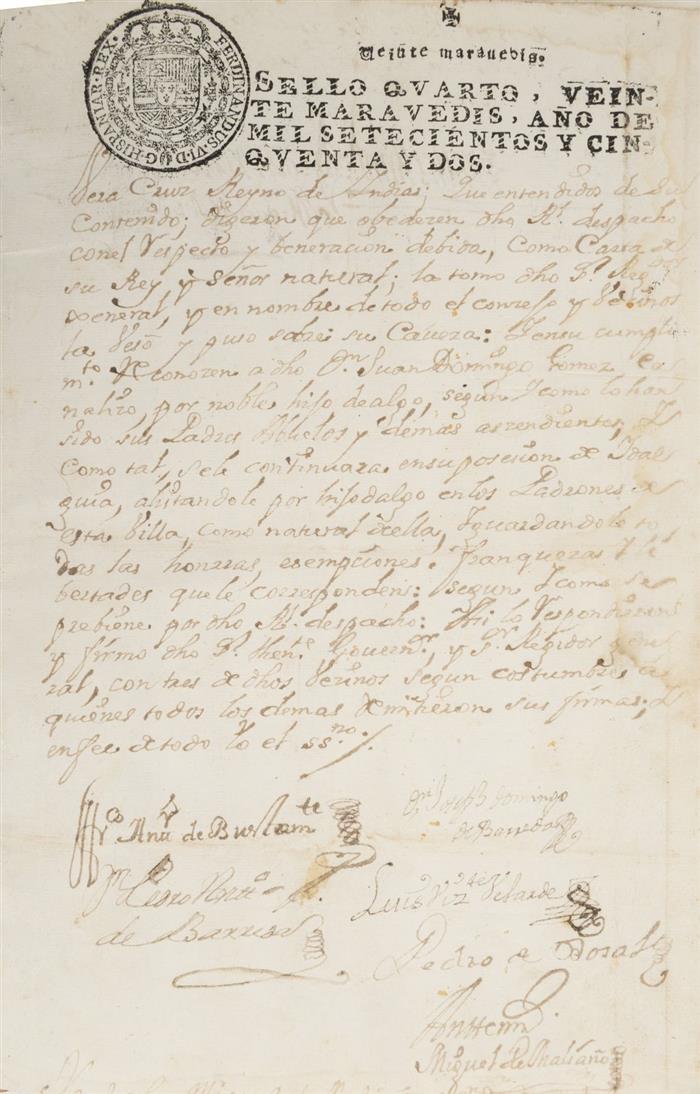 FERDINANDUS VI D G HISPANIAR REX
Veinte maravedis.
SELLO QVARTO, VEIN-
TE MARAVEDIS, AÑO DE
MIL SETECIENTOS Y CIN-
QVENTA Y DOS.
Vera Cruz Reyno de Indias; Que entendidos de su
Contenido; digeron que obederen dho Rl. despacho
con el Respecto y beneracion debida, como Carra de
su Rey y Señor natural; la tomo dho Sr. Regdor
xeneral, y en nombre de todo el conzejo y Vezinos
la Vesó y puso sobre su Caveza: Y en su cumpli
mto. Reconozen a dho Dn. Juan Domingo Gomez
nattivo, por noble hijo de algo, segun y como lo han
sido sus Padres Abuelos y demas asrendientes; Y
Como tal, se le continuara en su posesion de Idal
guia, alistandole por hijodalgo en los Padrones de
esta Villa, como natural de ella, Y guardandole to
das las honrras, esempciones. franquezas Y li
bertades que le corresponden: segun Y como se
prebiene por dho Rl. despacho: Asi lo Respondieron
y firmo dho Sr. thente. Governr. y Sr. Regidor gene
ral, con tres de dhos Vezinos segun costumbre a
quienes todos los demas Remitieron sus firmas; Y
en fee de todo Yo el ssno.
Anto de Bustamte
Dn. Joseph Domingo
de Barreda
Pedro
de Barreda
Luis Velarde
Pedro de Dosal
Ante mi
Miguel de Maliaño